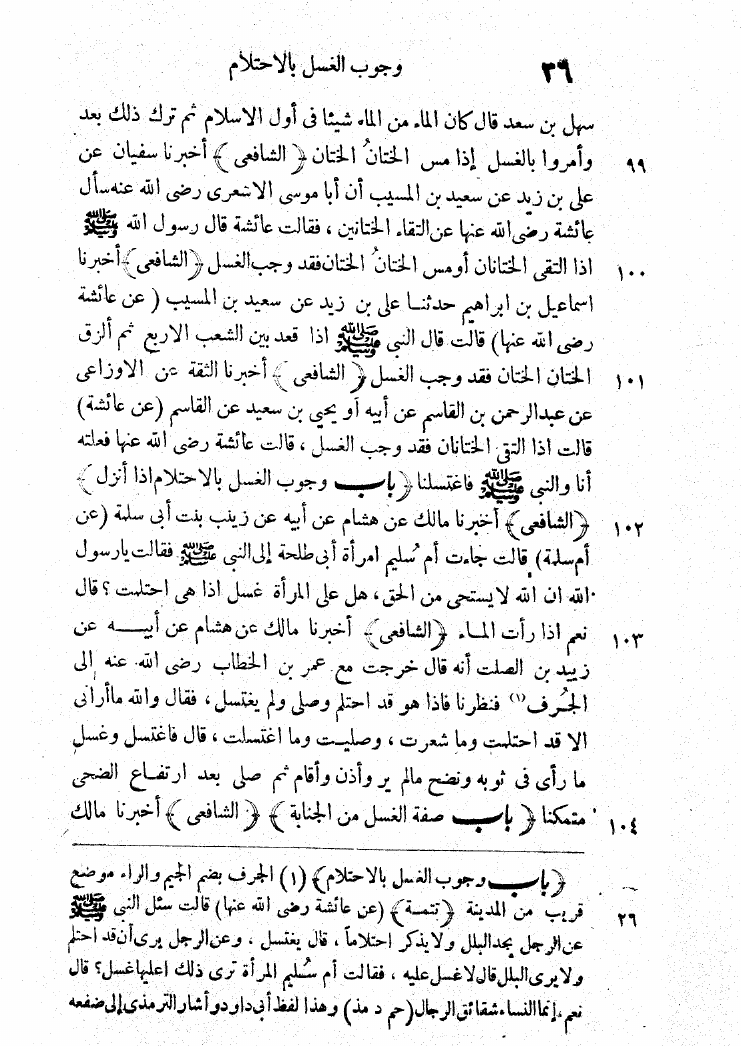 ٣٦ وجوب الغسل بالاحتلام
سهل بن سعد قال كان الماء من الماء شيئا فى أول الاسلام ثم ترك ذلك بعد
٩٩ وأمروا بالغسل إذا مس الختانُ الختان ﴿ الشافعى ﴾ أخبرنا سفيان عن
على بن زيد عن سعيد بن المسيب أن أبا موسى الاشعرى رضى الله عنه سأل
عائشة رضى الله عنها عن التقاء الختانين ، فقالت عائشة قال رسول الله ﷺ
١٠٠ اذا التقى الختانان أو مس الختانُ الختان فقد وجب الغسل ﴿ الشافعى ﴾ أخبرنا
اسماعيل بن ابراهيم حدثنا على بن زيد عن سعيد بن المسيب ( عن عائشة
رضى الله عنها ) قالت قال النبى ﷺ اذا قعد بين الشعب الاربع ثم ألزق
١٠١ الختان الختان فقد وجب الغسل ﴿ الشافعى ﴾ أخبرنا الثقة عن الاوزاعى
عن عبدالرحمن بن القاسم عن أبيه أو يحيى بن سعيد عن القاسم (عن عائشة)
قالت اذا التقى الختانان فقد وجب الغسل ، قالت عائشة رضى الله عنها فعلته
أنا والنبى ﷺ فاغتسلنا ﴿ باب وجوب الغسل بالاحتلام اذا أنزل ﴾
١٠٢ ﴿ الشافعى ﴾ أخبرنا مالك عن هشام عن أبيه عن زينب بنت أبى سلمة (عن
أم سلمة) قالت جاءت أم سُليم امرأة أبى طلحة إلى النبى ﷺ فقالت يارسول
الله ان الله لا يستحى من الحق ، هل على المرأة غسل اذا هى احتلمت ؟ قال
١٠٣ نعم اذا رأت الماء ﴿ الشافعى ﴾ أخبرنا مالك عن هشام عن أبيه عن
زييد بن الصلت أنه قال خرجت مع عمر بن الخطاب رضى الله عنه إلى
الجُرف (١) فنظرنا فاذا هو قد احتلم وصلى ولم يغتسل ، فقال والله ماأرانى
الا قد احتلمت وما شعرت ، وصليت وما اغتسلت ، قال فاغتسل وغسل
ما رأى فى ثوبه ونضح مالم ير وأذن وأقام ثم صلى بعد ارتفاع الضحى
١٠٤ متمكنا ﴿ باب صفة الغسل من الجنابة ﴾ ﴿ الشافعى ﴾ أخبرنا مالك
﴿ باب وجوب الغسل بالاحتلام ﴾ (١) الجرف بضم الجيم والراء موضع
٢٦ قريب من المدينة ﴿ تتمة ﴾ (عن عائشة رضى الله عنها) قالت سئل النبى ﷺ
عن الرجل يجد البلل ولا يذكر احتلاماً ، قال يغتسل ، وعن الرجل يرى أن قد احتلم
ولا يرى البلل قال لا غسل عليه ، فقالت أم سُليم المرأة ترى ذلك اعليها غسل؟ قال
نعم ، إنما النساء شقائق الرجال (حم د مذ) وهذا لفظ أبى داود وأشار الترمذى إلى ضعفه